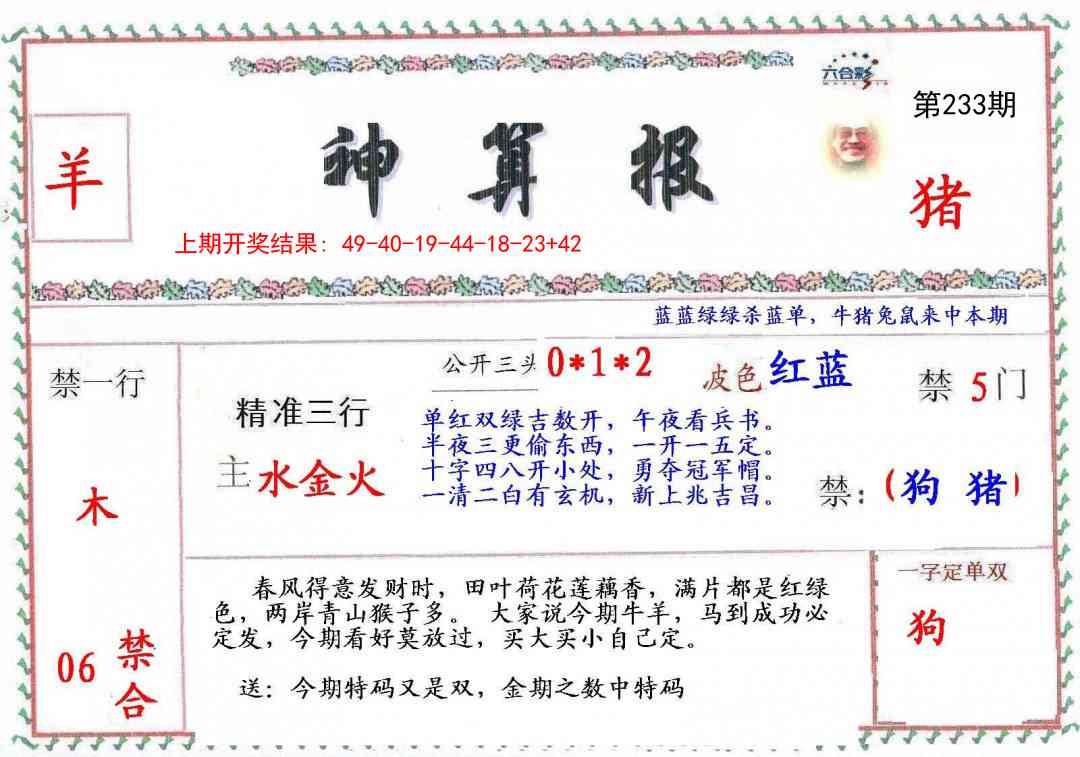 六合彩
第233期
羊
神算报
猪
上期开奖结果: 49-40-19-44-18-23+42
蓝蓝绿绿杀蓝单，牛猪兔鼠来中本期
禁一行
公开三头 0*1*2
波色 红蓝
禁 5 门
精准三行
主 水金火
单红双绿吉数开，午夜看兵书。
半夜三更偷东西，一开一五定。
十字四八开小处，勇夺冠军帽。
一清二白有玄机，新上兆吉昌。
禁:(狗 猪)
木
春风得意发财时，田叶荷花莲藕香，满片都是红绿
色，两岸青山猴子多。 大家说今期牛羊，马到成功必
定发，今期看好莫放过，买大买小自己定。
送：今期特码又是双，金期之数中特码
一字定单双
狗
06 禁合